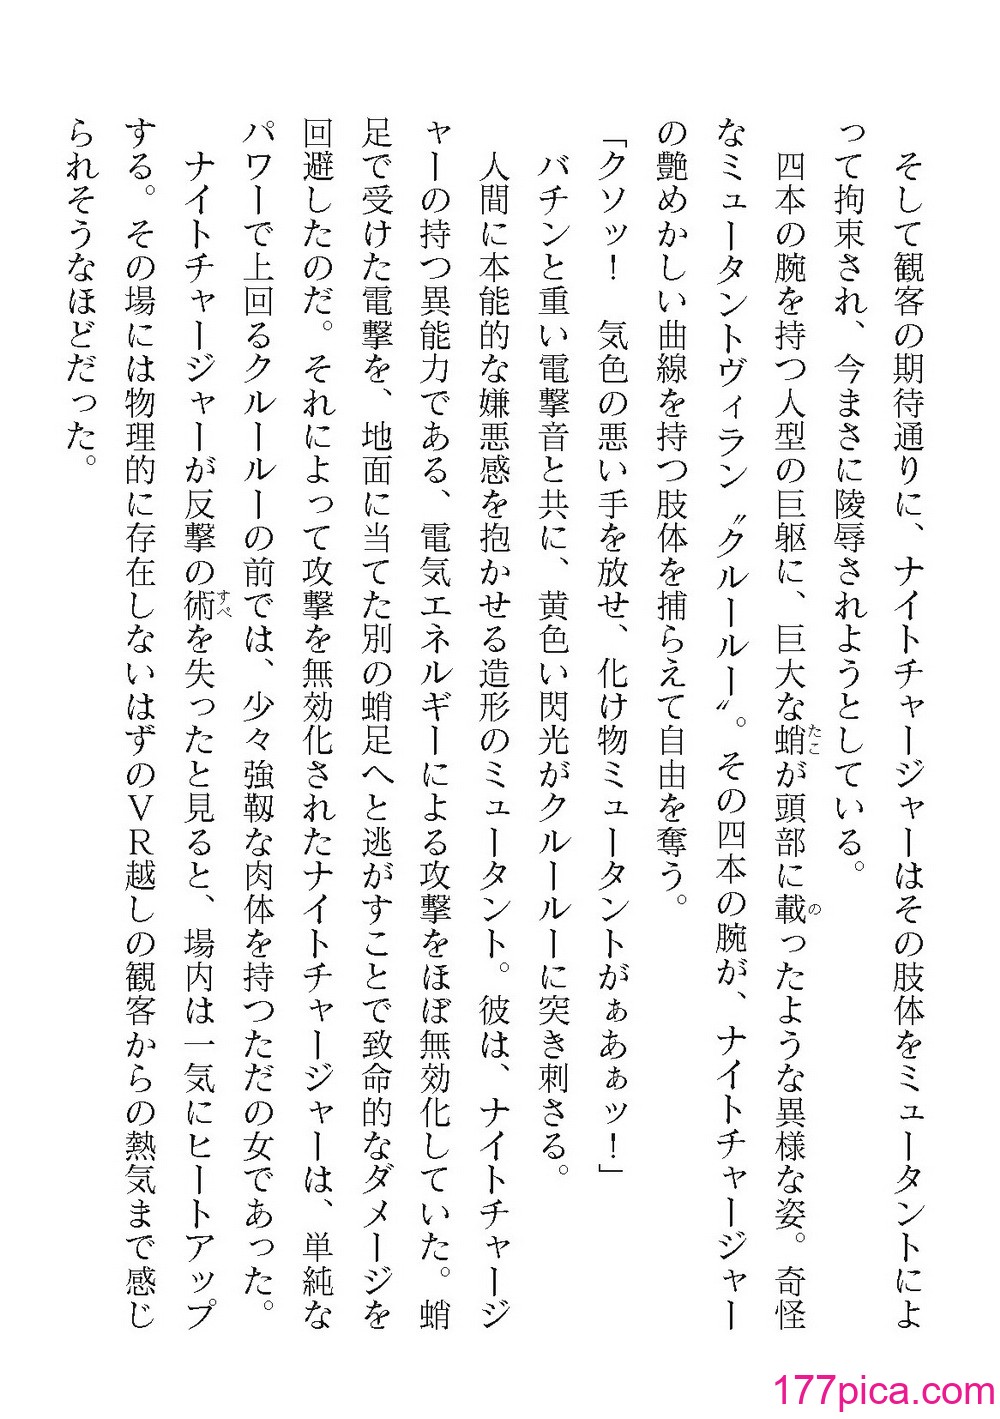 そして観客の期待通りに、ナイトチャージャーはその肢体をミュータントによ
って拘束され、今まさに陵辱されようとしている。
四本の腕を持つ人型の巨躯に、巨大な蛸が頭部に載ったような異様な姿。奇怪
たこ
の
なミュータントヴィラン〝クルールー〟。その四本の腕が、ナイトチャージャー
の艶めかしい曲線を持つ肢体を捕らえて自由を奪う。
「クソッ！　気色の悪い手を放せ、化け物ミュータントがぁあぁッ！」
バチンと重い電撃音と共に、黄色い閃光がクルールーに突き刺さる。
人間に本能的な嫌悪感を抱かせる造形のミュータント。彼は、ナイトチャージ
ャーの持つ異能力である、電気エネルギーによる攻撃をほぼ無効化していた。蛸
足で受けた電撃を、地面に当てた別の蛸足へと逃がすことで致命的なダメージを
回避したのだ。それによって攻撃を無効化されたナイトチャージャーは、単純な
パワーで上回るクルールーの前では、少々強靱な肉体を持つただの女であった。
ナイトチャージャーが反撃の術を失ったと見ると、場内は一気にヒートアップ
すべ
する。その場には物理的に存在しないはずのＶＲ越しの観客からの熱気まで感じ
られそうなほどだった。
177pica.com